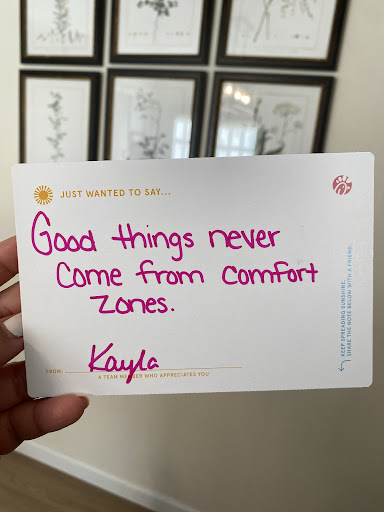 JUST WANTED TO SAY...
Good things never
come from comfort
zones.
Kayla
FROM:
A TEAM MEMBER WHO APPRECIATES YOU
KEEP SPREADING SUNSHINE.
SHARE THE NOTE BELOW WITH A FRIEND.